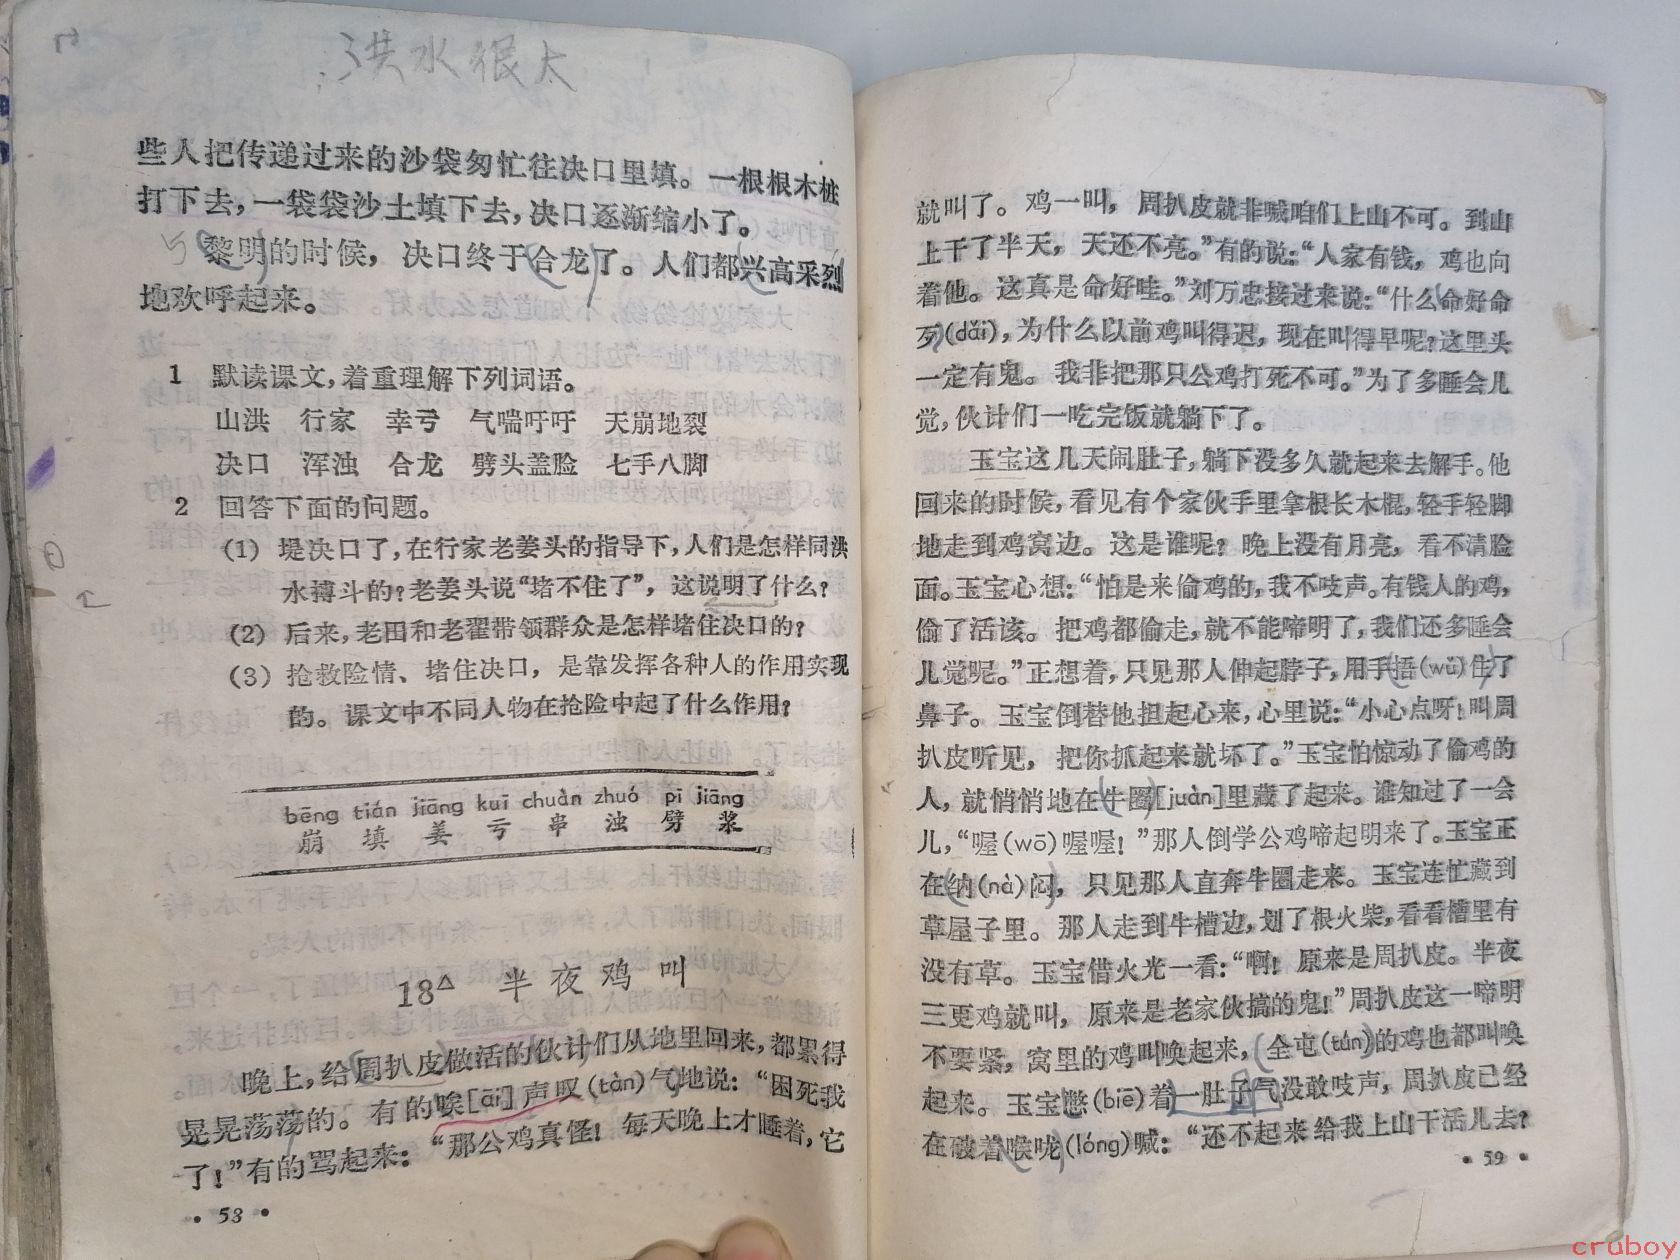 洪水很大
些人把传递过来的沙袋匆忙往决口里填。一根根木桩
打下去，一袋袋沙土填下去，决口逐渐缩小了。
黎明的时候，决口终于合龙了。人们都兴高采烈
地欢呼起来。
1 默读课文，着重理解下列词语。
山洪 行家 幸亏 气喘吁吁 天崩地裂
决口 浑浊 合龙 劈头盖脸 七手八脚
2 回答下面的问题。
(1) 堤决口了，在行家老姜头的指导下，人们是怎样同洪
水搏斗的？老姜头说“堵不住了”，这说明了什么？
(2) 后来，老田和老翟带领群众是怎样堵住决口的？
(3) 抢救险情、堵住决口，是靠发挥各种人的作用实现
的。课文中不同人物在抢险中起了什么作用？
bēng tián jiāng kuī chuàn zhuó pī jiāng
崩 填 姜 亏 串 浊 劈 浆
18△ 半夜鸡叫
晚上，给周扒皮做活的伙计们从地里回来，都累得
晃晃荡荡的。有的唉[āi]声叹(tàn)气地说：“困死我
了！”有的骂起来：“那公鸡真怪！每天晚上才睡着，它
• 53 •
就叫了。鸡一叫，周扒皮就非喊咱们上山不可。到山
上干了半天，天还不亮。”有的说：“人家有钱，鸡也向
着他。这真是命好哇。”刘万忠接过来说：“什么命好命
歹(dǎi)，为什么以前鸡叫得迟，现在叫得早呢？这里头
一定有鬼。我非把那只公鸡打死不可。”为了多睡会儿
觉，伙计们一吃完饭就躺下了。
玉宝这几天闹肚子，躺下没多久就起来去解手。他
回来的时候，看见有个家伙手里拿根长木棍，轻手轻脚
地走到鸡窝边。这是谁呢？晚上没有月亮，看不清脸
面。玉宝心想：“怕是来偷鸡的，我不吱声。有钱人的鸡，
偷了活该。把鸡都偷走，就不能啼明了，我们还多睡会
儿觉呢。”正想着，只见那人伸起脖子，用手捂(wǔ)住了
鼻子。玉宝倒替他担起心来，心里说：“小心点呀！叫周
扒皮听见，把你抓起来就坏了。”玉宝怕惊动了偷鸡的
人，就悄悄地在牛圈[juàn]里藏了起来。谁知过了一会
儿，“喔(wō)喔喔！”那人倒学公鸡啼起明来了。玉宝正
在纳(nà)闷，只见那人直奔牛圈走来。玉宝连忙藏到
草屋子里。那人走到牛槽边，划了根火柴，看看槽里有
没有草。玉宝借火光一看：“啊！原来是周扒皮。半夜
三更鸡就叫，原来是老家伙搞的鬼！”周扒皮这一啼明
不要紧，窝里的鸡叫唤起来，全屯(tún)的鸡也都叫唤
起来。玉宝憋(biē)着一肚子气没敢吱声，周扒皮已经
在破着喉咙(lóng)喊：“还不起来给我上山干活儿去？
• 59 •
cruboy